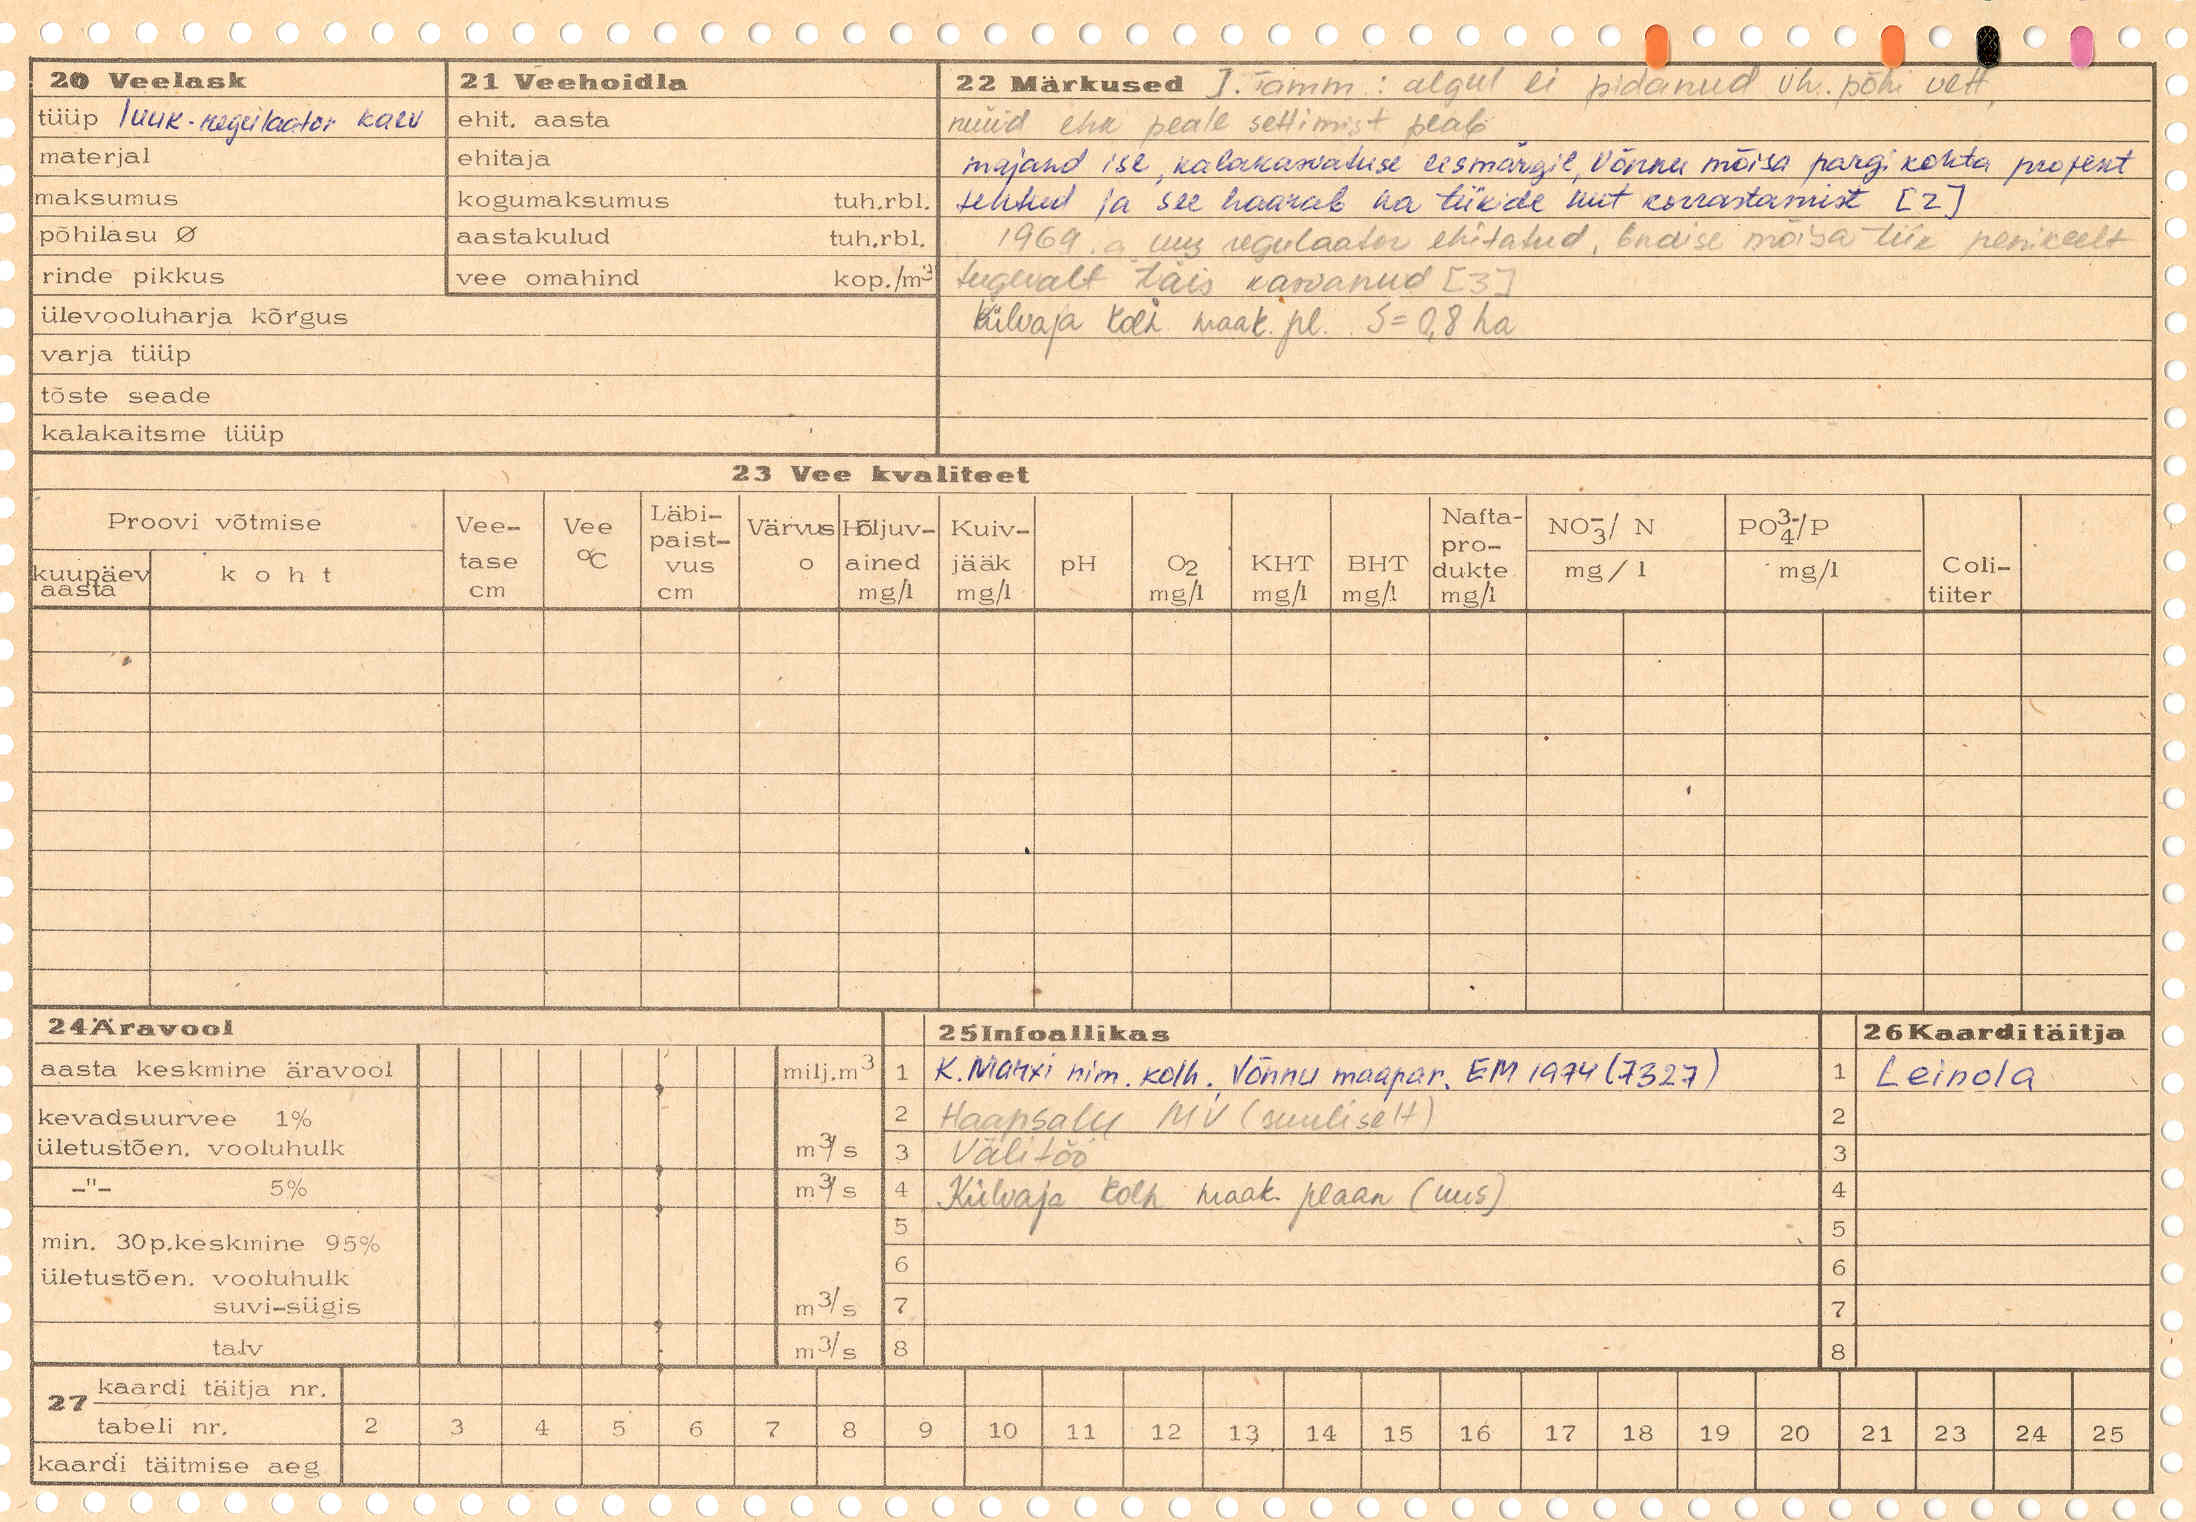 20 Veelask
tüüp luuk-regulaator kaev
materjal
maksumus
põhilasu Ø
rinde pikkus
ülevooluharja kõrgus
varja tüüp
tõste seade
kalakaitsme tüüp
21 Veehoidla
ehit. aasta
ehitaja
kogumaksumus tuh.rbl.
aastakulud tuh.rbl.
vee omahind kop./m³
22 Märkused J. Tamm: algul ei pidanud vh. põhi vett,
nüüd ehk peale settimist peab
majand ise, kalakasvatuse eesmärgil, Võnnu mõisa pargi kohta projekt
tehtud ja see haarab ka tiikide korrastamist [2]
1969. a uus regulaator ehitatud, endise mõisa tiik penikeelt
tugevalt täis kasvanud [3]
Külvaja kolh. maak. pl. S=0,8 ha
23 Vee kvaliteet
Proovi võtmise
kuupäev aasta
koht
Vee-tase cm
Vee °C
Läbi-paist-vus cm
Värvus o
Hõljuv-ained mg/l
Kuiv-jääk mg/l
pH
O₂ mg/l
KHT mg/l
BHT mg/l
Nafta-pro-dukte mg/l
NO₃⁻/ N mg/l
PO₄³⁻/P mg/l
Coli-tiiter
24 Äravool
aasta keskmine äravool milj.m³
kevadsuurvee 1%
ületustõen. vooluhulk m³/s
-"- 5% m³/s
min. 30p.keskmine 95%
ületustõen. vooluhulk
suvi-sügis m³/s
talv m³/s
25 Infoallikas
1 K. Marxi nim. kolh. Võnnu maapar. EM 1974 (7327)
2 Haapsalu MV (suuliselt)
3 Välitöö
4 Külvaja kolh maak. plaan (uus)
5
6
7
8
26 Kaarditäitja
1 Leinola
2
3
4
5
6
7
8
27 kaardi täitja nr.
tabeli nr. 2 3 4 5 6 7 8 9 10 11 12 13 14 15 16 17 18 19 20 21 23 24 25
kaardi täitmise aeg